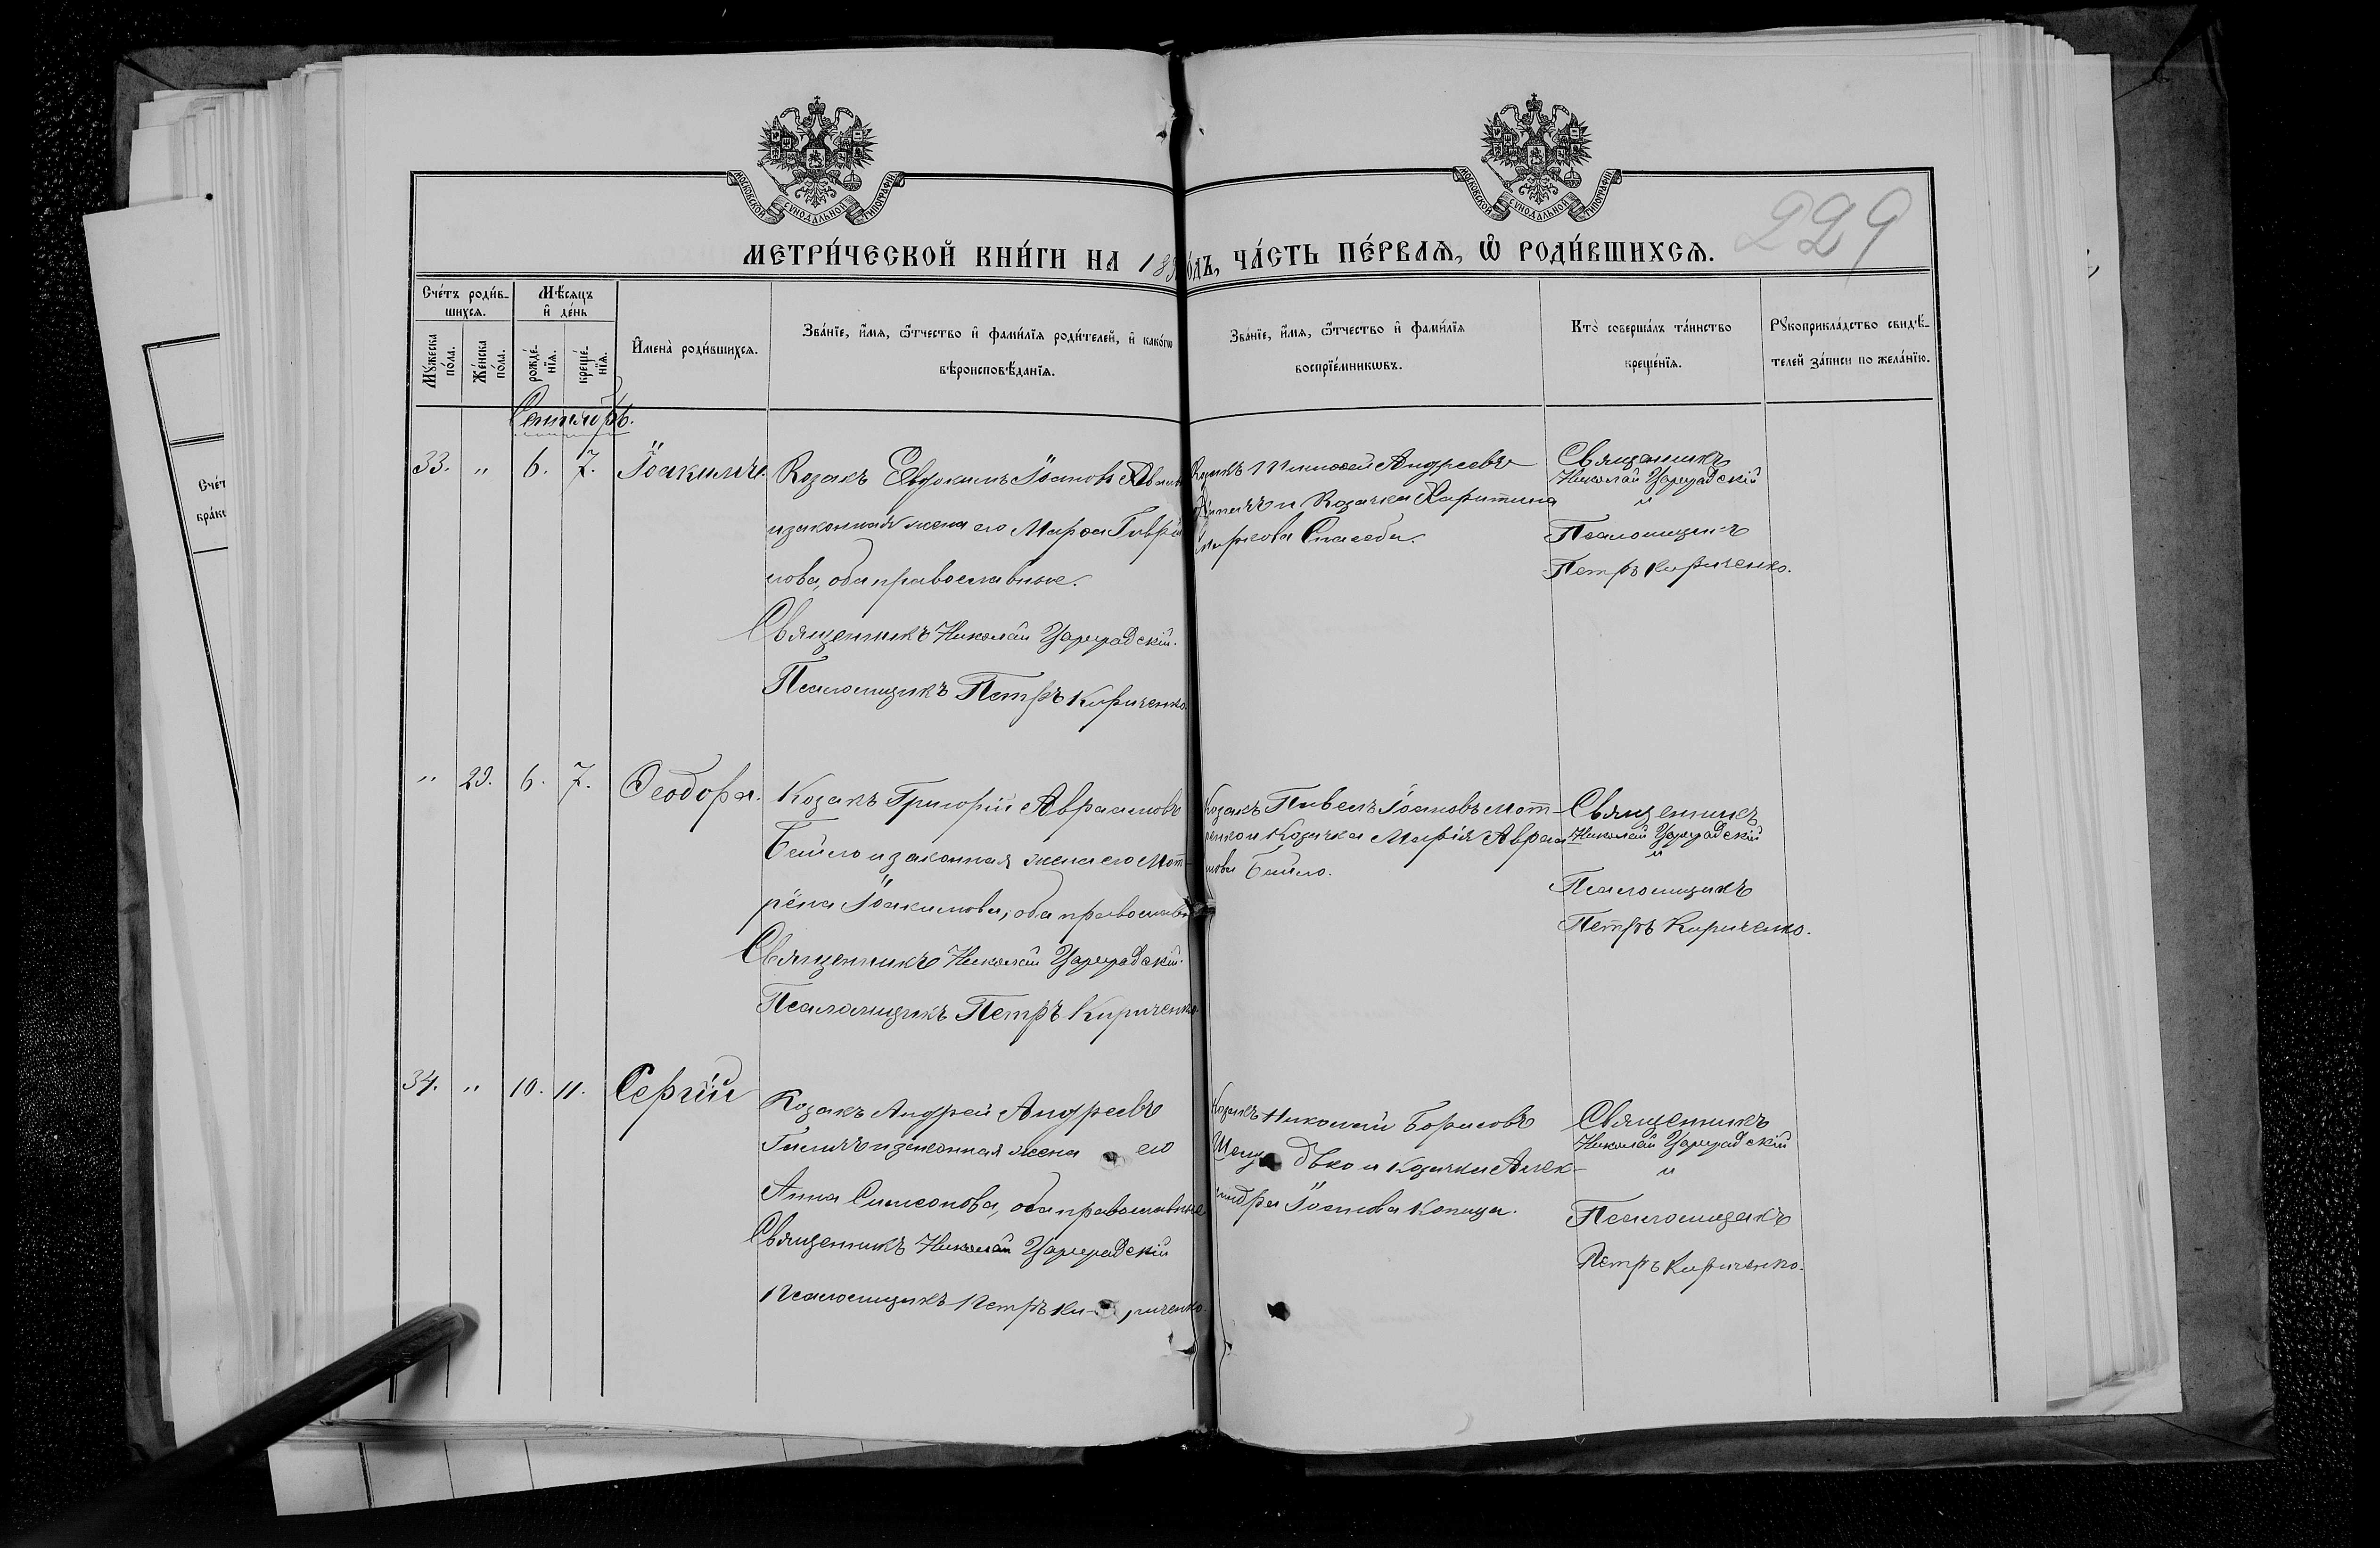 МОСКОВСКОЙ СѴНОДАЛЬНОЙ ТИПОГРАФІИ
МОСКОВСКОЙ СѴНОДАЛЬНОЙ ТИПОГРАФІИ
229
МЕТРИ́ЧЕСКОЙ КНИ́ГИ НА 18
ЧА́СТЬ ПЕ́РВАѦ, Ѿ РОДИ́ВШИХСѦ.
Сче́тъ роди́в-
шихсѧ.
Мѣ́сѧцъ
и҆ де́нь
Мꙋ́жеска
по́ла.
Же́нска
по́ла.
рожде́-
нїѧ.
креще́-
нїѧ.
И҆мена̀ роди́вшихсѧ.
Зва́нїе, и҆́мѧ, ѻ҆́тчество и҆ фами́лїѧ роди́телей, и҆ како́гѡ
вѣроисповѣ́данїѧ.
Зва́нїе, и҆́мѧ, ѻ҆́тчество и҆ фами́лїѧ
воспрїе́мникѡвъ.
Кто̀ соверша́лъ та́инство
креще́нїѧ.
Рꙋкоприкла́дство свидѣ́-
телей за́писи по жела́нїю.
Сентябрь.
33. " 6. 7. Іоакимъ.
Козакъ Евдокимъ Іоановъ
и законная жена его Марѳа Гаврі
лова, оба православные.
Священникъ Николай Цареградскій.
Псаломщикъ Петръ Кириченко.
Андреевъ
и Козачка Харитина
Спасеба.
Священникъ
Николай Цареградскій
и
Псаломщикъ
Петръ Кириченко.
" 29. 6. 7. Ѳеодора.
Козакъ Григорій Авраамовъ
Байло и законная жена его Мот-
рёна Іоакимова, оба православн
Священникъ Николай Цареградскій.
Псаломщикъ Петръ Кириченко.
Козакъ Павелъ Іоановъ Мот-
ренко и Козачка Марія Авраа
мова Байло.
Священникъ
Николай Цареградскій
и
Псаломщикъ
Петръ Кириченко.
34. " 10. 11. Сергій
Козакъ Андрей Андреевъ
и законная жена его
Анна Симеонова, оба православные
Священникъ Николай Цареградскій
Псаломщикъ Петръ Кириченко.
Козакъ Николай Борисовъ
и Козачка Алек-
сандра Іоанова Копица.
Священникъ
Николай Цареградскій
и
Псаломщикъ
Петръ Кириченко.